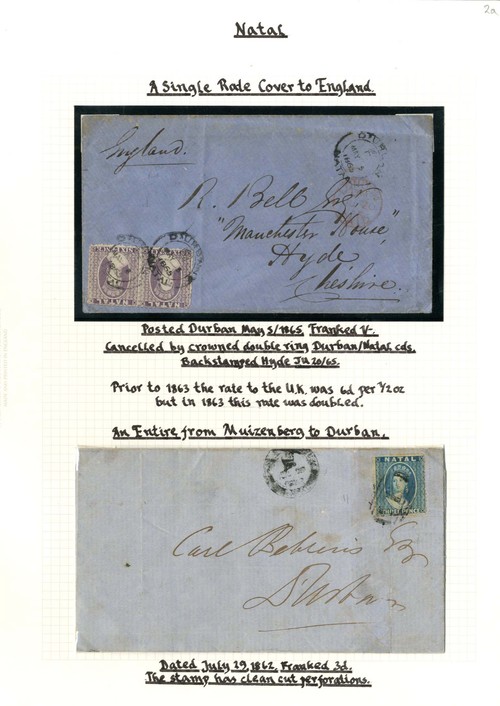 2a
Natal
A Single Rate Cover to England.
England.
DURBAN
NATAL
R. Bell Esqr
"Manchester House"
Hyde
Cheshire.
DURBAN
SIX PENCE SIX PENCE
NATAL NATAL
Posted Durban May 5/1865. Franked 1/-.
Cancelled by crowned double ring Durban/Natal cds.
Backstamped Hyde JU 20/65.
Prior to 1863 the rate to the U.K. was 6d per 1/2 oz
but in 1863 this rate was doubled.
An Entire from Muizenberg to Durban.
NATAL
THREE PENCE
Carl Behrens Esq
D'Urban
Dated July 29, 1862. Franked 3d.
The stamp has clean cut perforations.